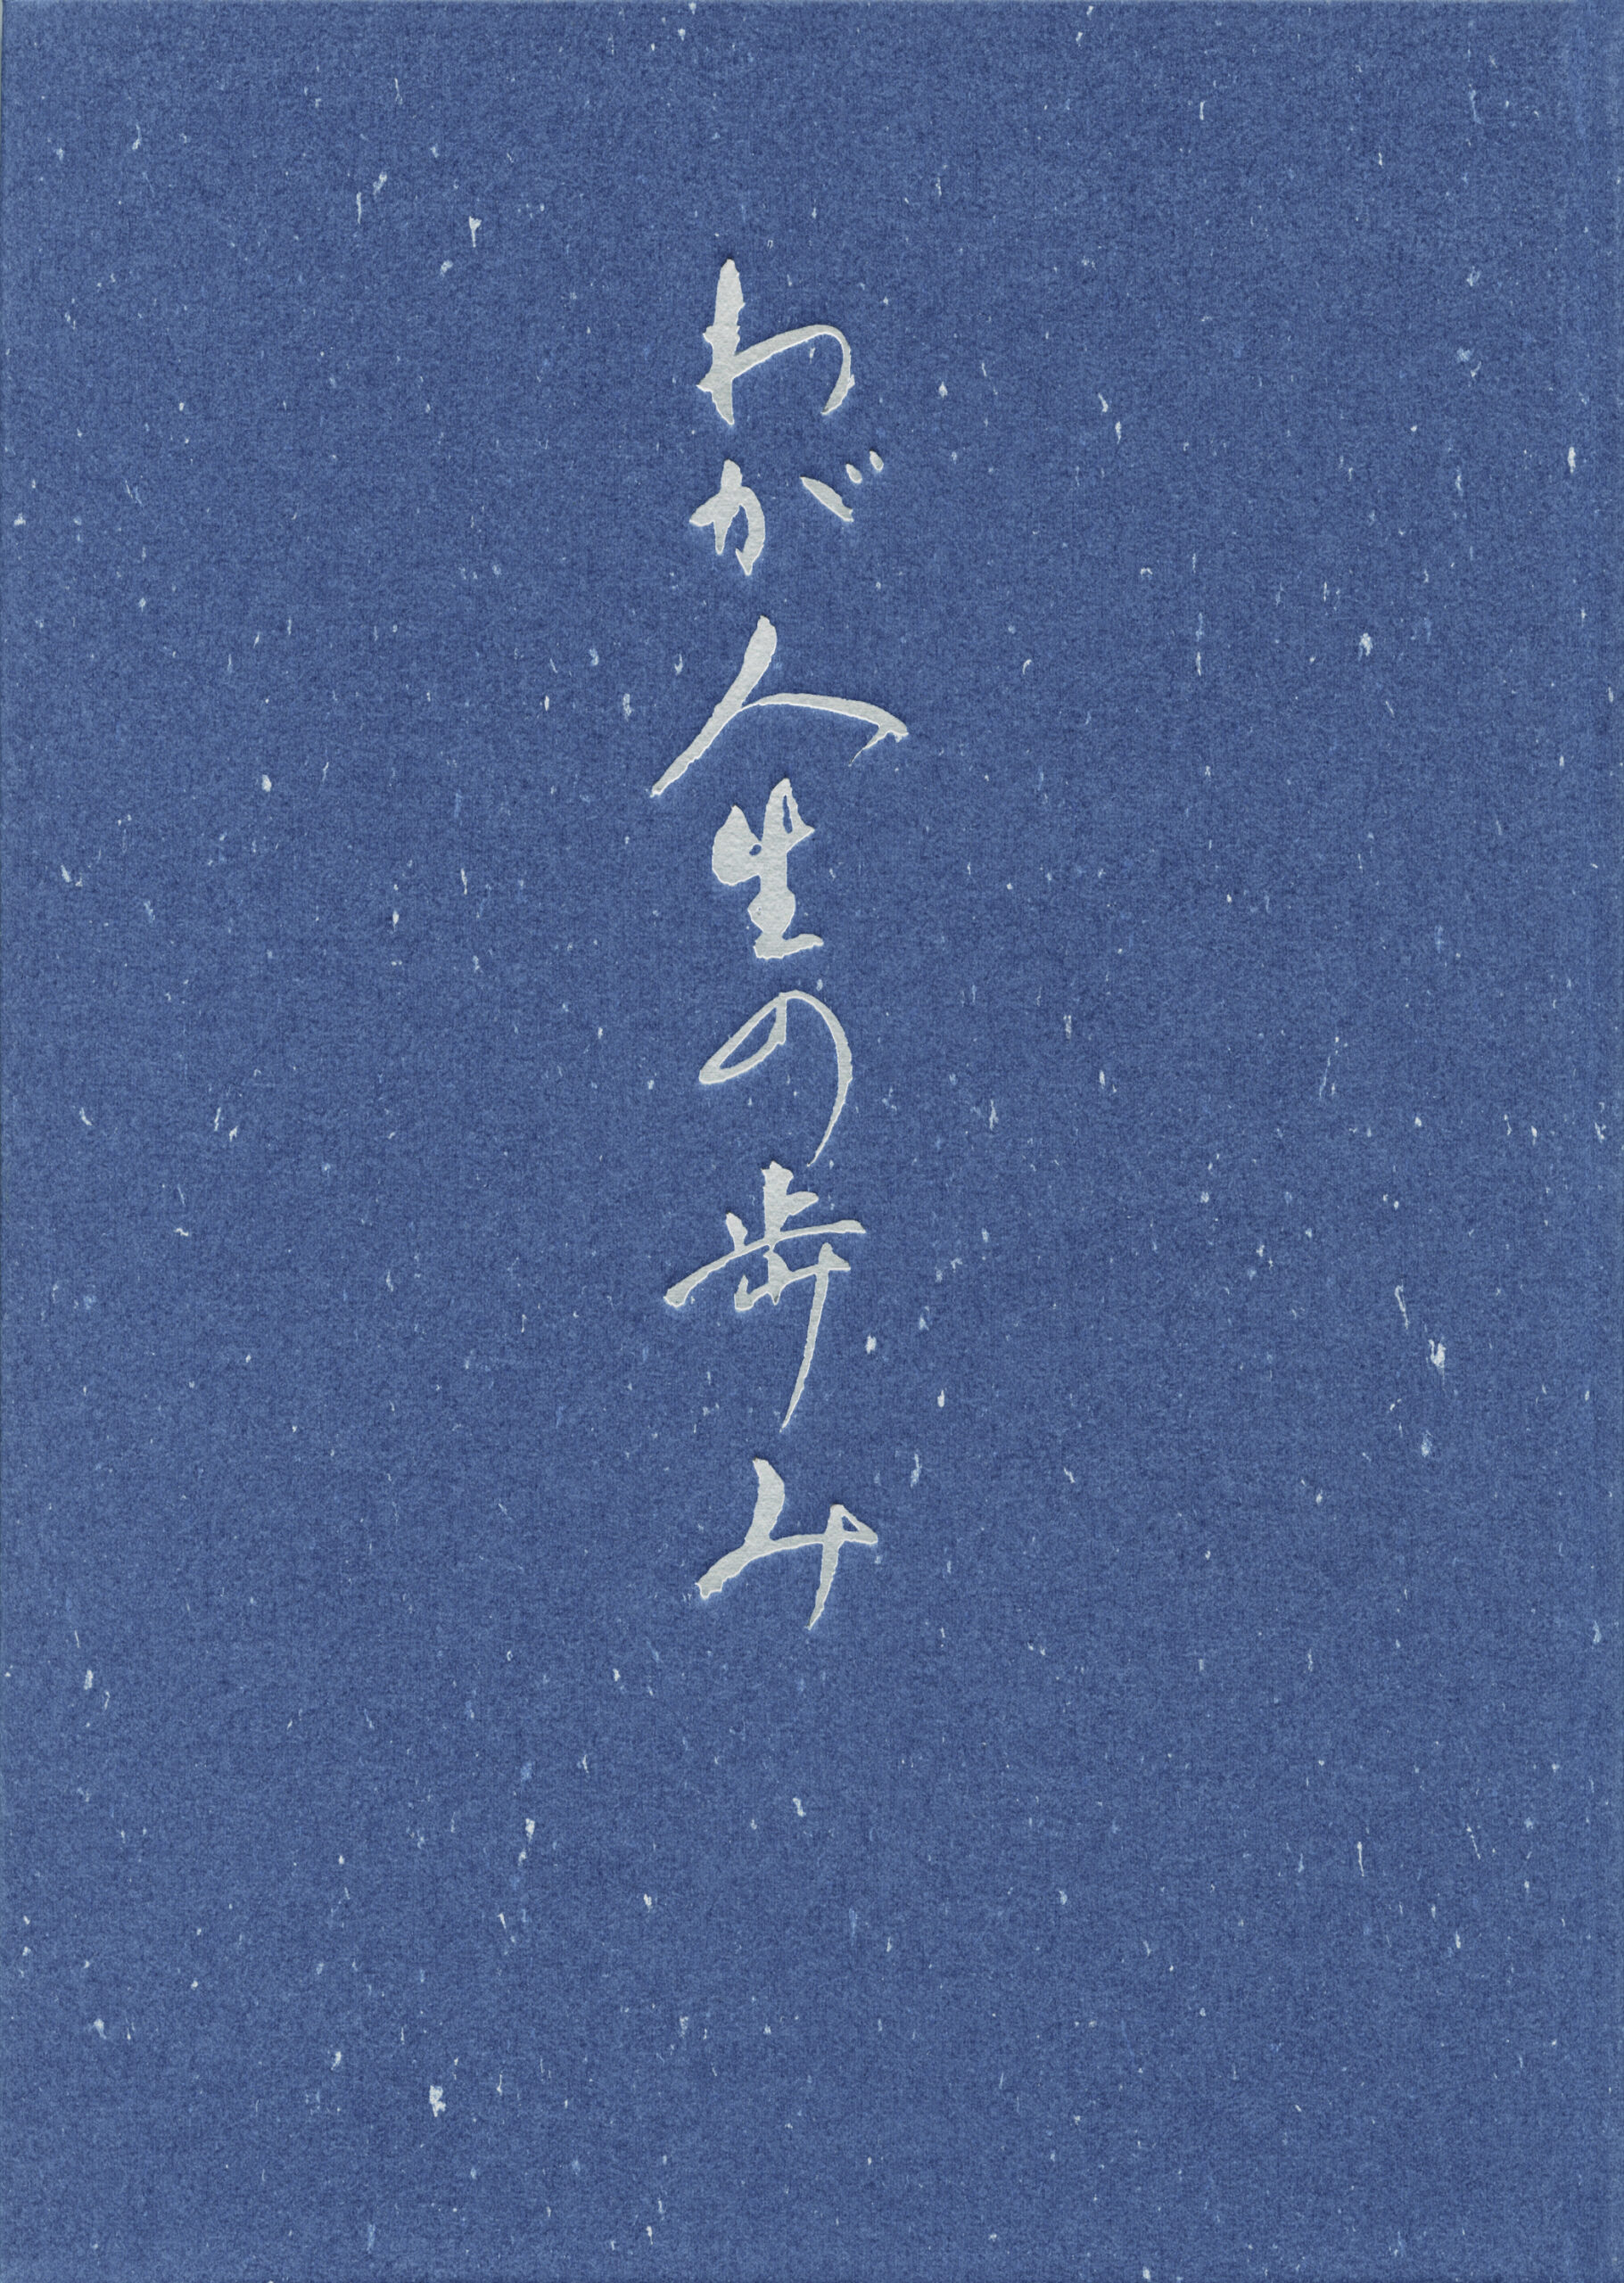 わが人生の歩み